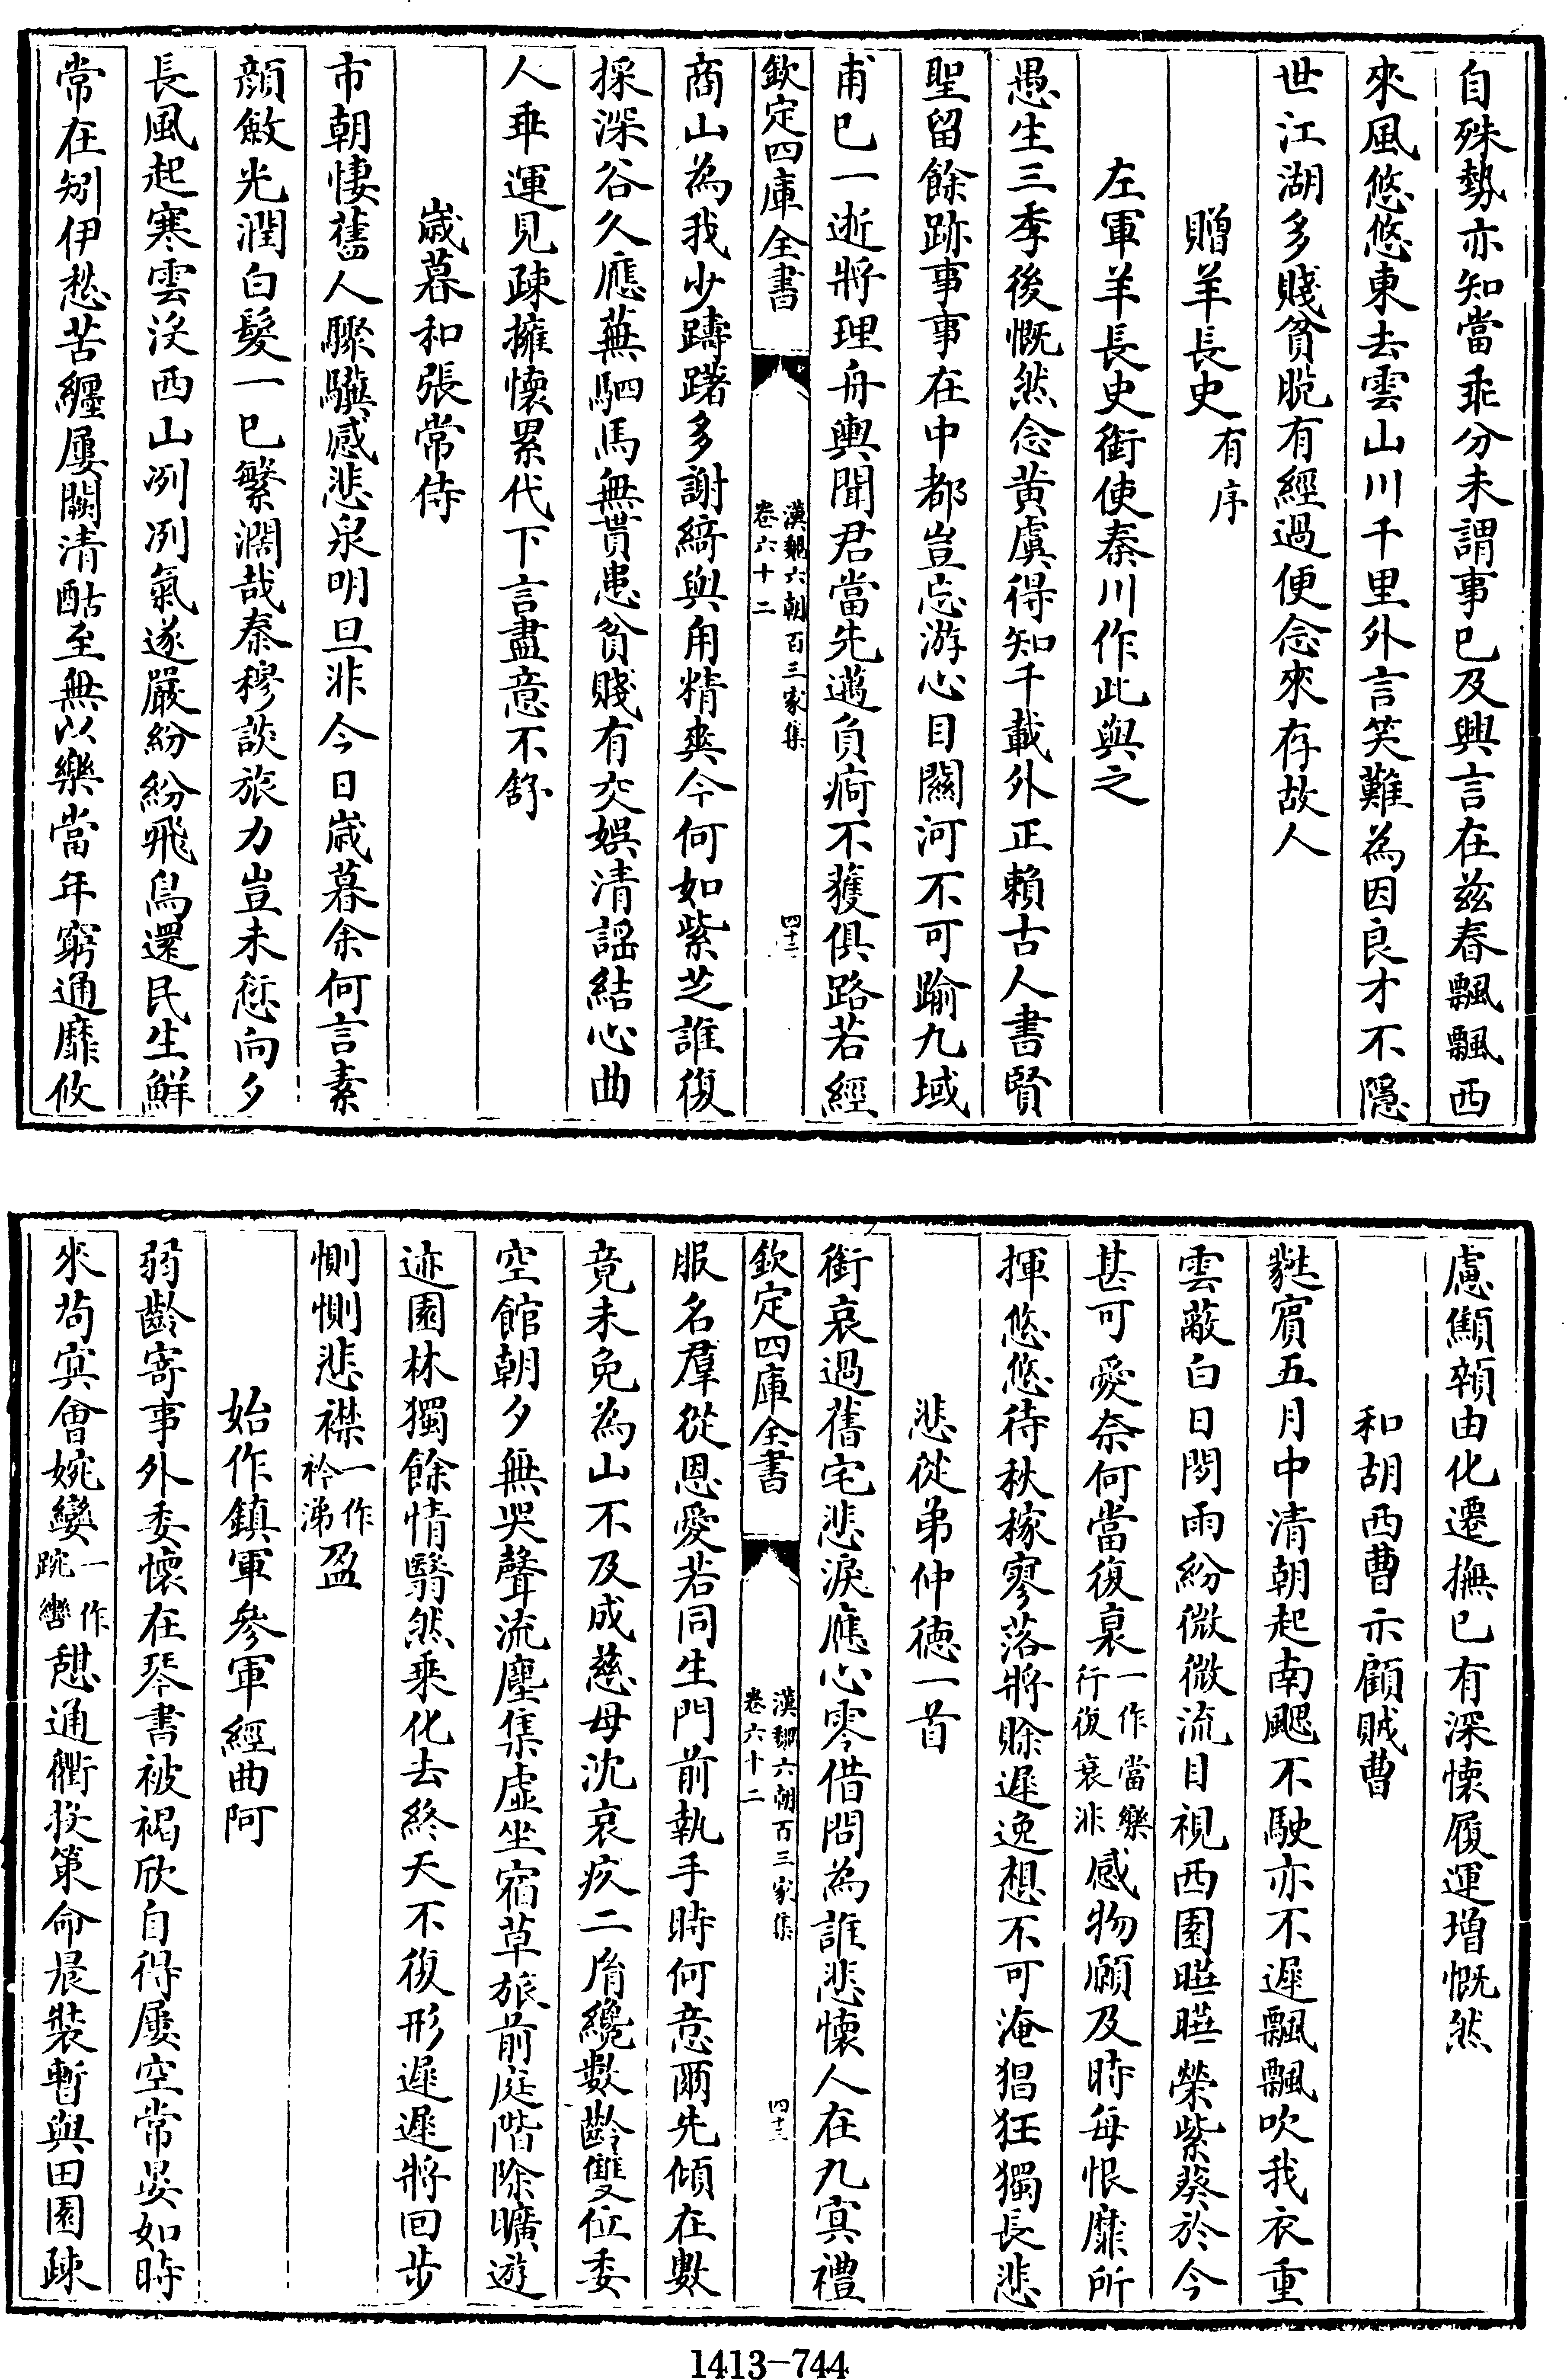 自殊勢亦知當乖分未謂事已及興言在兹春飄飄西
來風悠悠東去雲山川千里外言笑難為因良才不隱
世江湖多賤貧脫有經過便念來存故人
贈羊長史有序
左軍羊長史銜使秦川作此與之
愚生三季後慨然念黄虞得知千載外正賴古人書賢
聖留餘跡事事在中都豈忘游心目關河不可踰九域
甫已一逝將理舟輿聞君當先邁負疴不獲俱路若經
欽定四庫全書
漢魏六朝百三家集
卷六十二
四十二
商山為我少躊躇多謝綺與甪精爽今何如紫芝誰復
採深谷久應蕪駟馬無貰患貧賤有交娛清謡結心曲
人乖運見疎擁懷累代下言盡意不舒
歲暮和張常侍
市朝悽舊人驟驥感悲泉明旦非今日歲暮余何言素
顏斂光潤白髮一已繁濶哉秦穆談旅力豈未愆向夕
長風起寒雲没西山冽冽氣遂嚴紛紛飛鳥還民生鮮
常在矧伊愁苦纏屢闕清酤至無以樂當年窮通靡攸
慮顦顇由化遷撫已有深懷履運增慨然
和胡西曹示顧賊曹
蕤賓五月中清朝起南颸不駛亦不遲飄飄吹我衣重
雲蔽白日閑雨紛微微流目視西園曄曄榮紫葵於今
甚可愛奈何當復衰一作當樂行復衰非感物願及時每恨靡所
揮悠悠待秋稼寥落將賖遲逸想不可淹猖狂獨長悲
悲從弟仲德一首
銜哀過舊宅悲淚應心零借問為誰悲懷人在九㝠禮
欽定四庫全書
漢魏六朝百三家集
卷六十二
四十三
服名羣從恩愛若同生門前執手時何意爾先傾在數
竟未免為山不及成慈母沈哀疚二𦙍纔數齡雙位委
空館朝夕無哭聲流塵集虛坐宿草旅前庭階除曠遊
迹園林獨餘情翳然乘化去終天不復形遲遲將回步
惻惻悲襟一作衿涕盈
始作鎮軍參軍經曲阿
弱齡寄事外委懷在琴書被褐欣自得屢空常晏如時
來茍㝠會婉孌一作踠轡憇通衢投策命晨裝暫與田園疎
1413-744